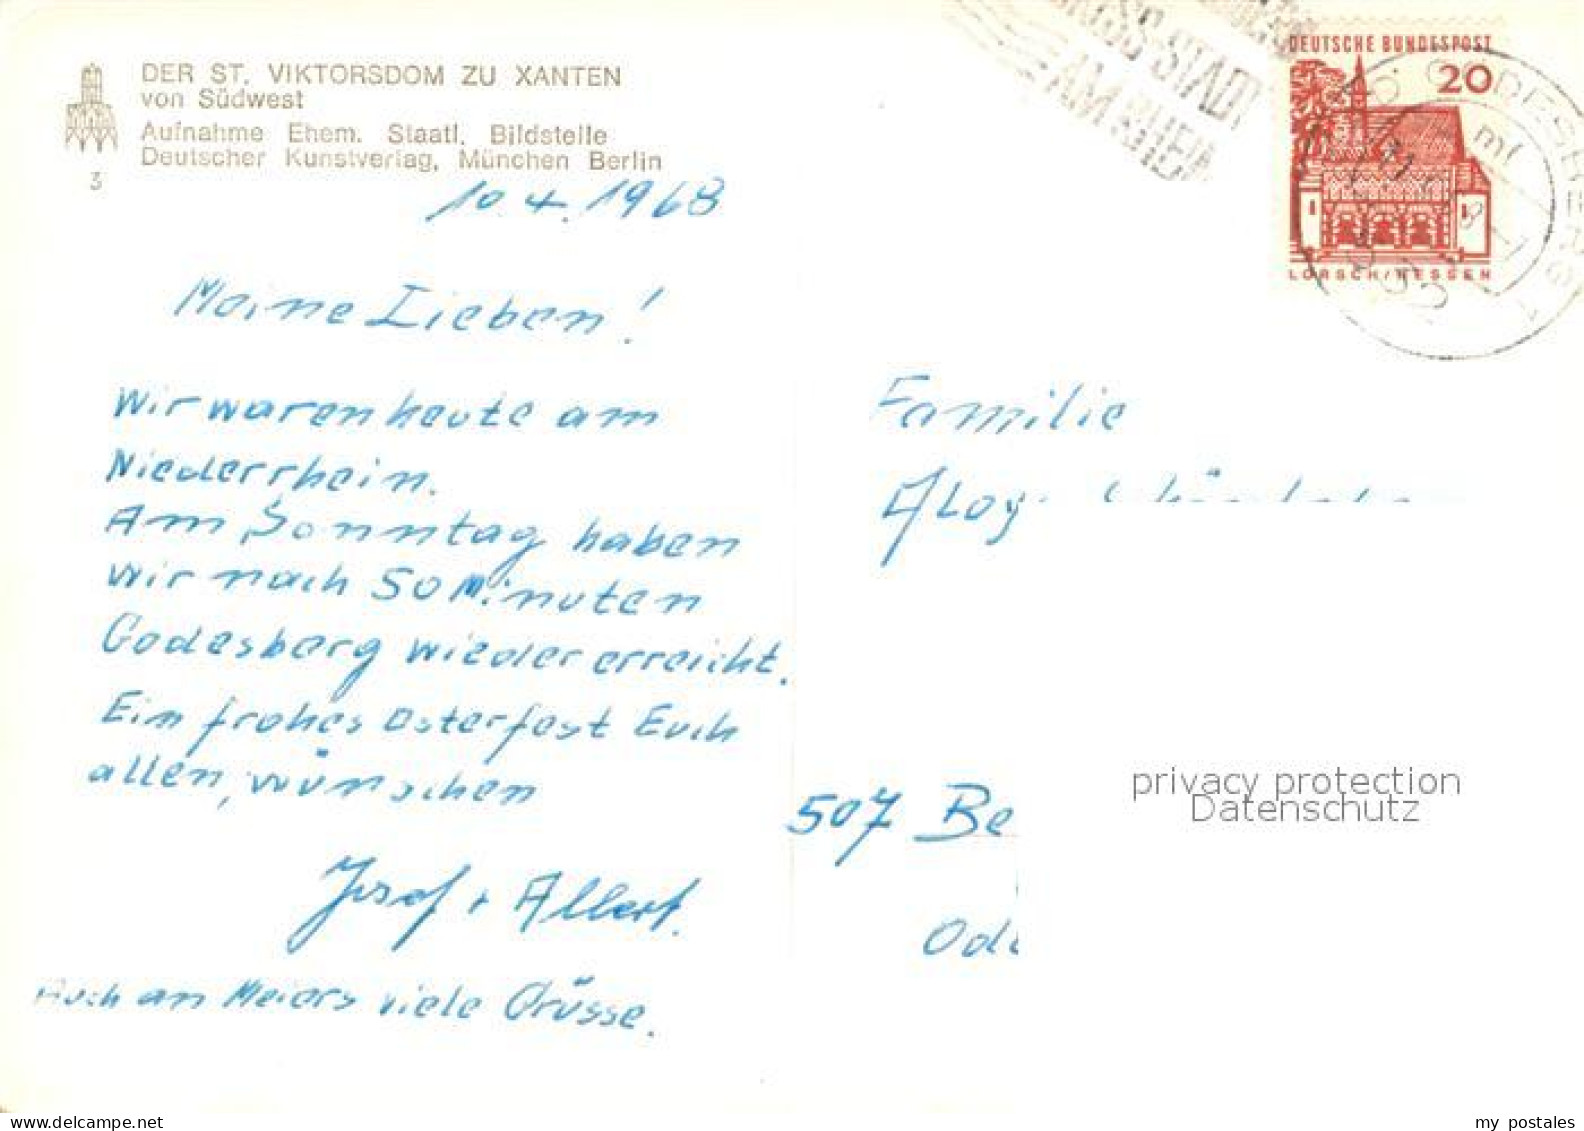 DER ST. VIKTORSDOM ZU XANTEN
von Südwest
Aufnahme Ehem. Staatl. Bildstelle
Deutscher Kunstverlag, München Berlin
3
10.4.1968
Meine Lieben!
Wir waren heute am
Niederrhein.
Am Sonntag haben
wir nach 50 Minuten
Godesberg wieder erreicht.
Ein frohes Osterfest Euch
allen, wünschen
Josef + Albert.
Auch an Meiers viele Grüsse.
STADT
AM RHEIN
DEUTSCHE BUNDESPOST
20
LORSCH/HESSEN
GODESBERG
Familie
507 Be
privacy protection
Datenschutz
my postales